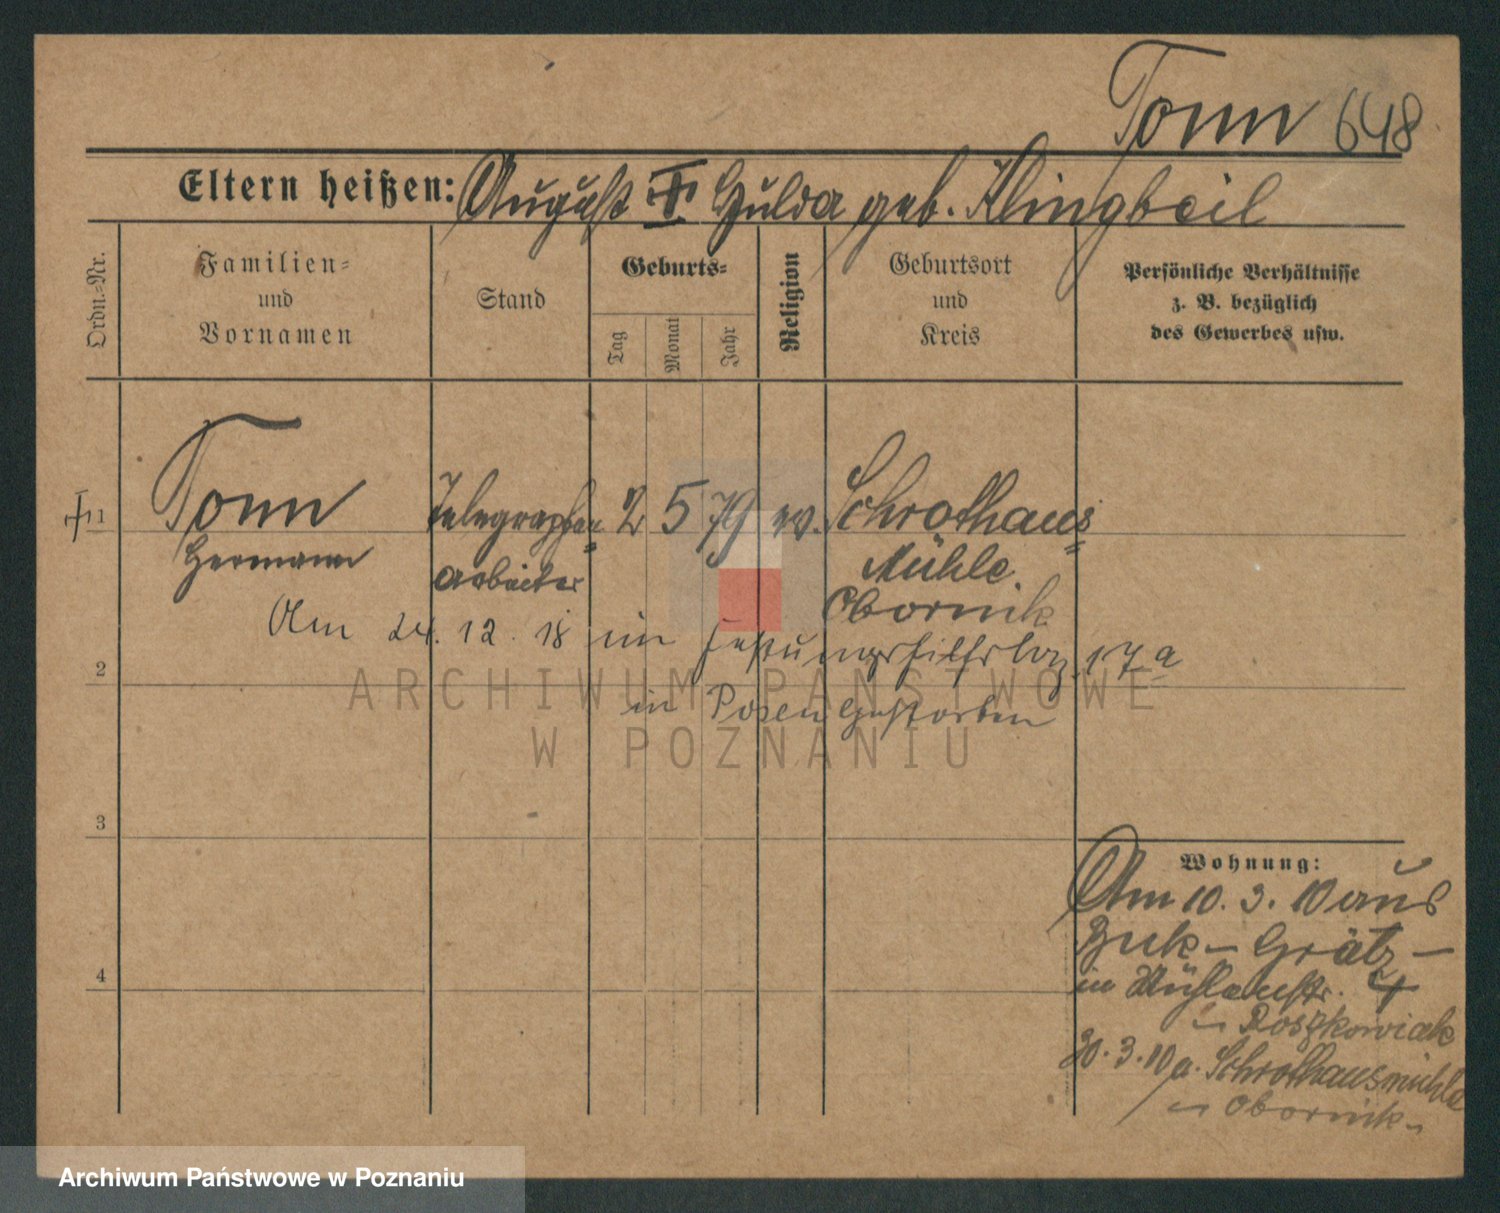 Tonn 648
Eltern heißen: August u. Hulda geb. Klingbeil
Ordn.-Nr.
Familien-
und
Vornamen
Stand
Geburts-
Tag
Monat
Jahr
Religion
Geburtsort
und
Kreis
Persönliche Verhältnisse
z. B. bezüglich
des Gewerbes usw.
1 Tonn Telegraphen- 2 5 79 ev. Schrothaus-
Hermann arbeiter Mühle.
Obornik
Am 24. 12. 18 im Festungshilfslaz. 17a
2
in Posen gestorben
ARCHIWUM PAŃSTWOWE
W POZNANIU
3
Wohnung:
Am 10. 3. 10 aus
Buk - Grätz -
in Mühlenstr. 4
Roszkowiak
30. 3. 10 a. Schrothausmühle
Obornik
4
Archiwum Państwowe w Poznaniu